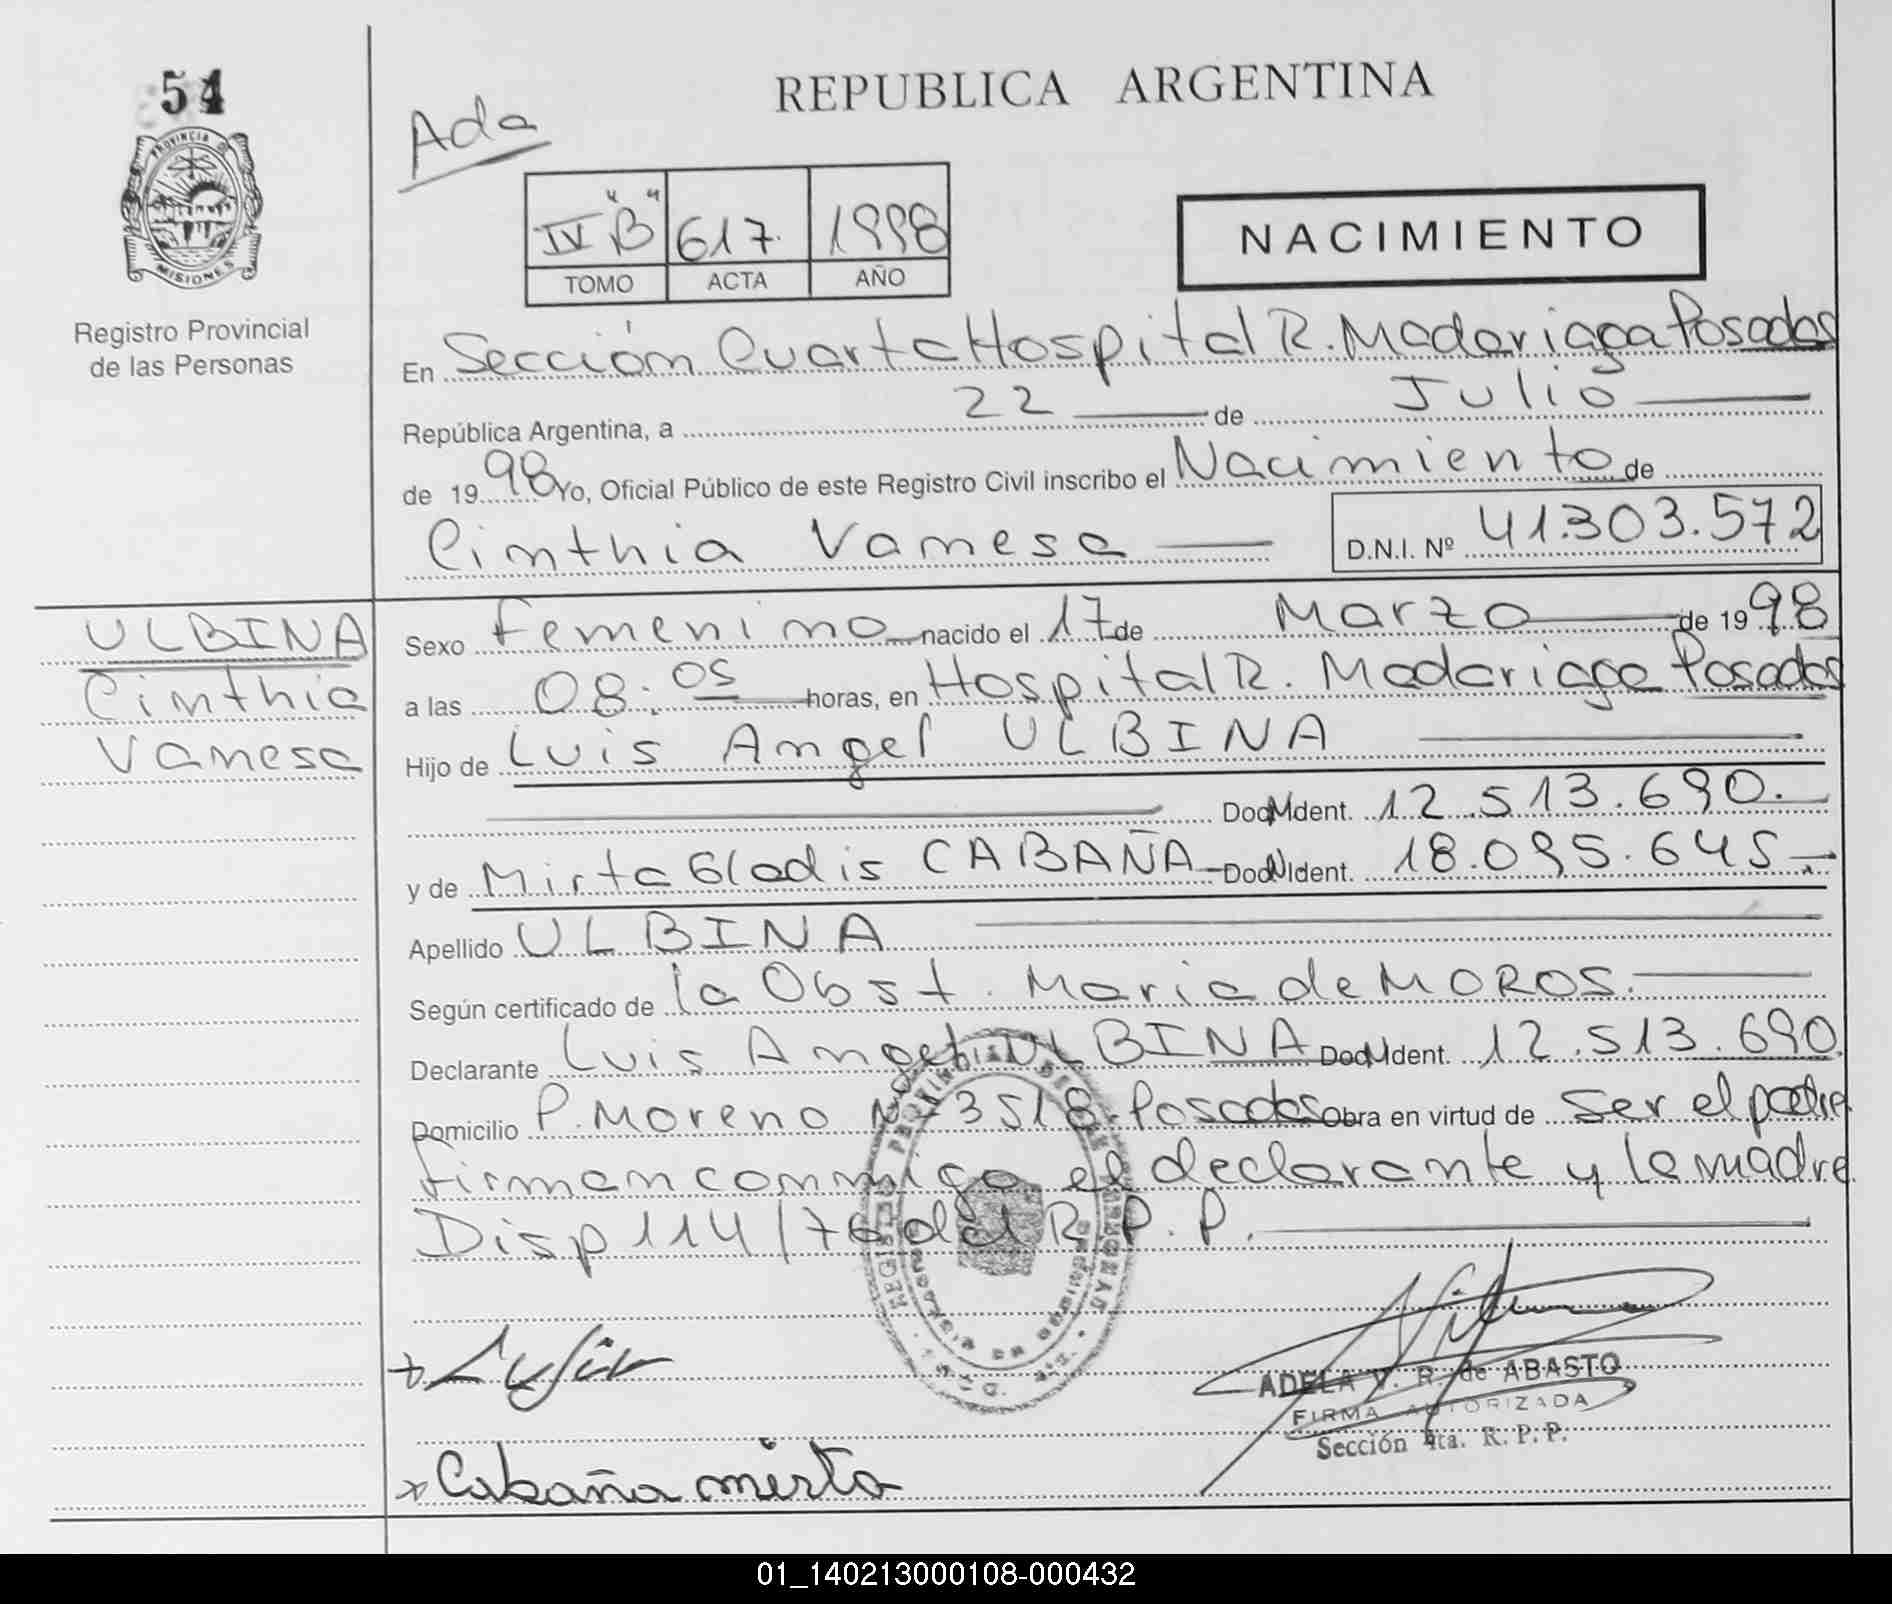 54
PROVINCIA DE
MISIONES
Registro Provincial
de las Personas
REPUBLICA ARGENTINA
Ada
IV "B" 617 1998
TOMO ACTA AÑO
NACIMIENTO
En Sección Cuarta Hospital R. Madariaga Posadas
República Argentina, a 22 de Julio
de 1998 Yo, Oficial Público de este Registro Civil inscribo el Nacimiento de
Cinthia Vanesa D.N.I. Nº 41.303.572
ULBINA
Cinthia
Vanesa
Sexo femenino nacido el 17 de Marzo de 1998
a las 08:05 horas, en Hospital R. Madariaga Posadas
Hijo de Luis Angel ULBINA
Doc. Ident. 12.513.690.
y de Mirta Gladis CABAÑA Doc. Ident. 18.095.645.
Apellido ULBINA
Según certificado de la Obst. Maria de MOROS.
Declarante Luis Angel ULBINA Doc. Ident. 12.513.690
Domicilio P. Moreno Nº 3518 Posadas Obra en virtud de ser el padre
firman conmigo el declarante y la madre
Disp 114/76 del R.P.P.
ADELA V. R. de ABASTO
FIRMA AUTORIZADA
Sección 4ta. R. P. P.
x Cabaña mirta
01_140213000108-000432